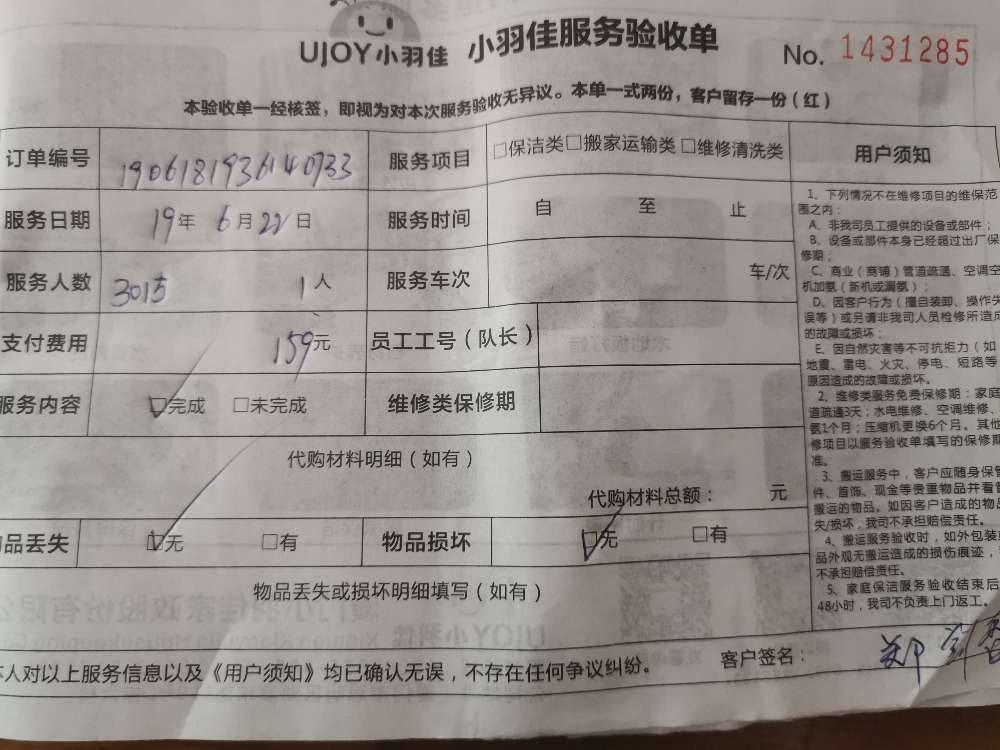 UJOY小羽佳 小羽佳服务验收单 No. 1431285
本验收单一经核签，即视为对本次服务验收无异议。本单一式两份，客户留存一份（红）
订单编号 1906181936140733 服务项目 □保洁类□搬家运输类□维修清洗类 用户须知
服务日期 19年 6月22日 服务时间 自 至 止
服务人数 3015 1人 服务车次 车/次
支付费用 159元 员工工号（队长）
服务内容 ☑完成 □未完成 维修类保修期
代购材料明细（如有）
代购材料总额： 元
品丢失 ☑无 □有 物品损坏 ☑无 □有
物品丢失或损坏明细填写（如有）
人对以上服务信息以及《用户须知》均已确认无误，不存在任何争议纠纷。 客户签名： 郑
1、下列情况不在维修项目的维保范
围之内：
A、非我司员工提供的设备或部件；
B、设备或部件本身已经超过出厂保
修期；
C、商业（商铺）管道疏通、空调空
机加氨（新机或漏氨）；
D、因客户行为（擅自装卸、操作失
误等）或另请非我司人员检修所造成
的故障或损坏；
E、因自然灾害等不可抗拒力（如
地震、雷电、火灾、停电、短路等
原因造成的故障或损坏。
2、维修类服务免费保修期：家庭
道疏通3天；水电维修、空调维修、
氨1个月；压缩机更换6个月。其他
修项目以服务验收单填写的保修期
准。
3、搬运服务中，客户应随身保管
件、首饰、现金等贵重物品并看管
搬运的物品。如因客户造成的物品
失/损坏，我司不承担赔偿责任。
4、搬运服务验收时，如外包装
品外观无搬运造成的损伤痕迹，
不承担赔偿责任。
5、家庭保洁服务验收结束后
48小时，我司不负责上门返工。